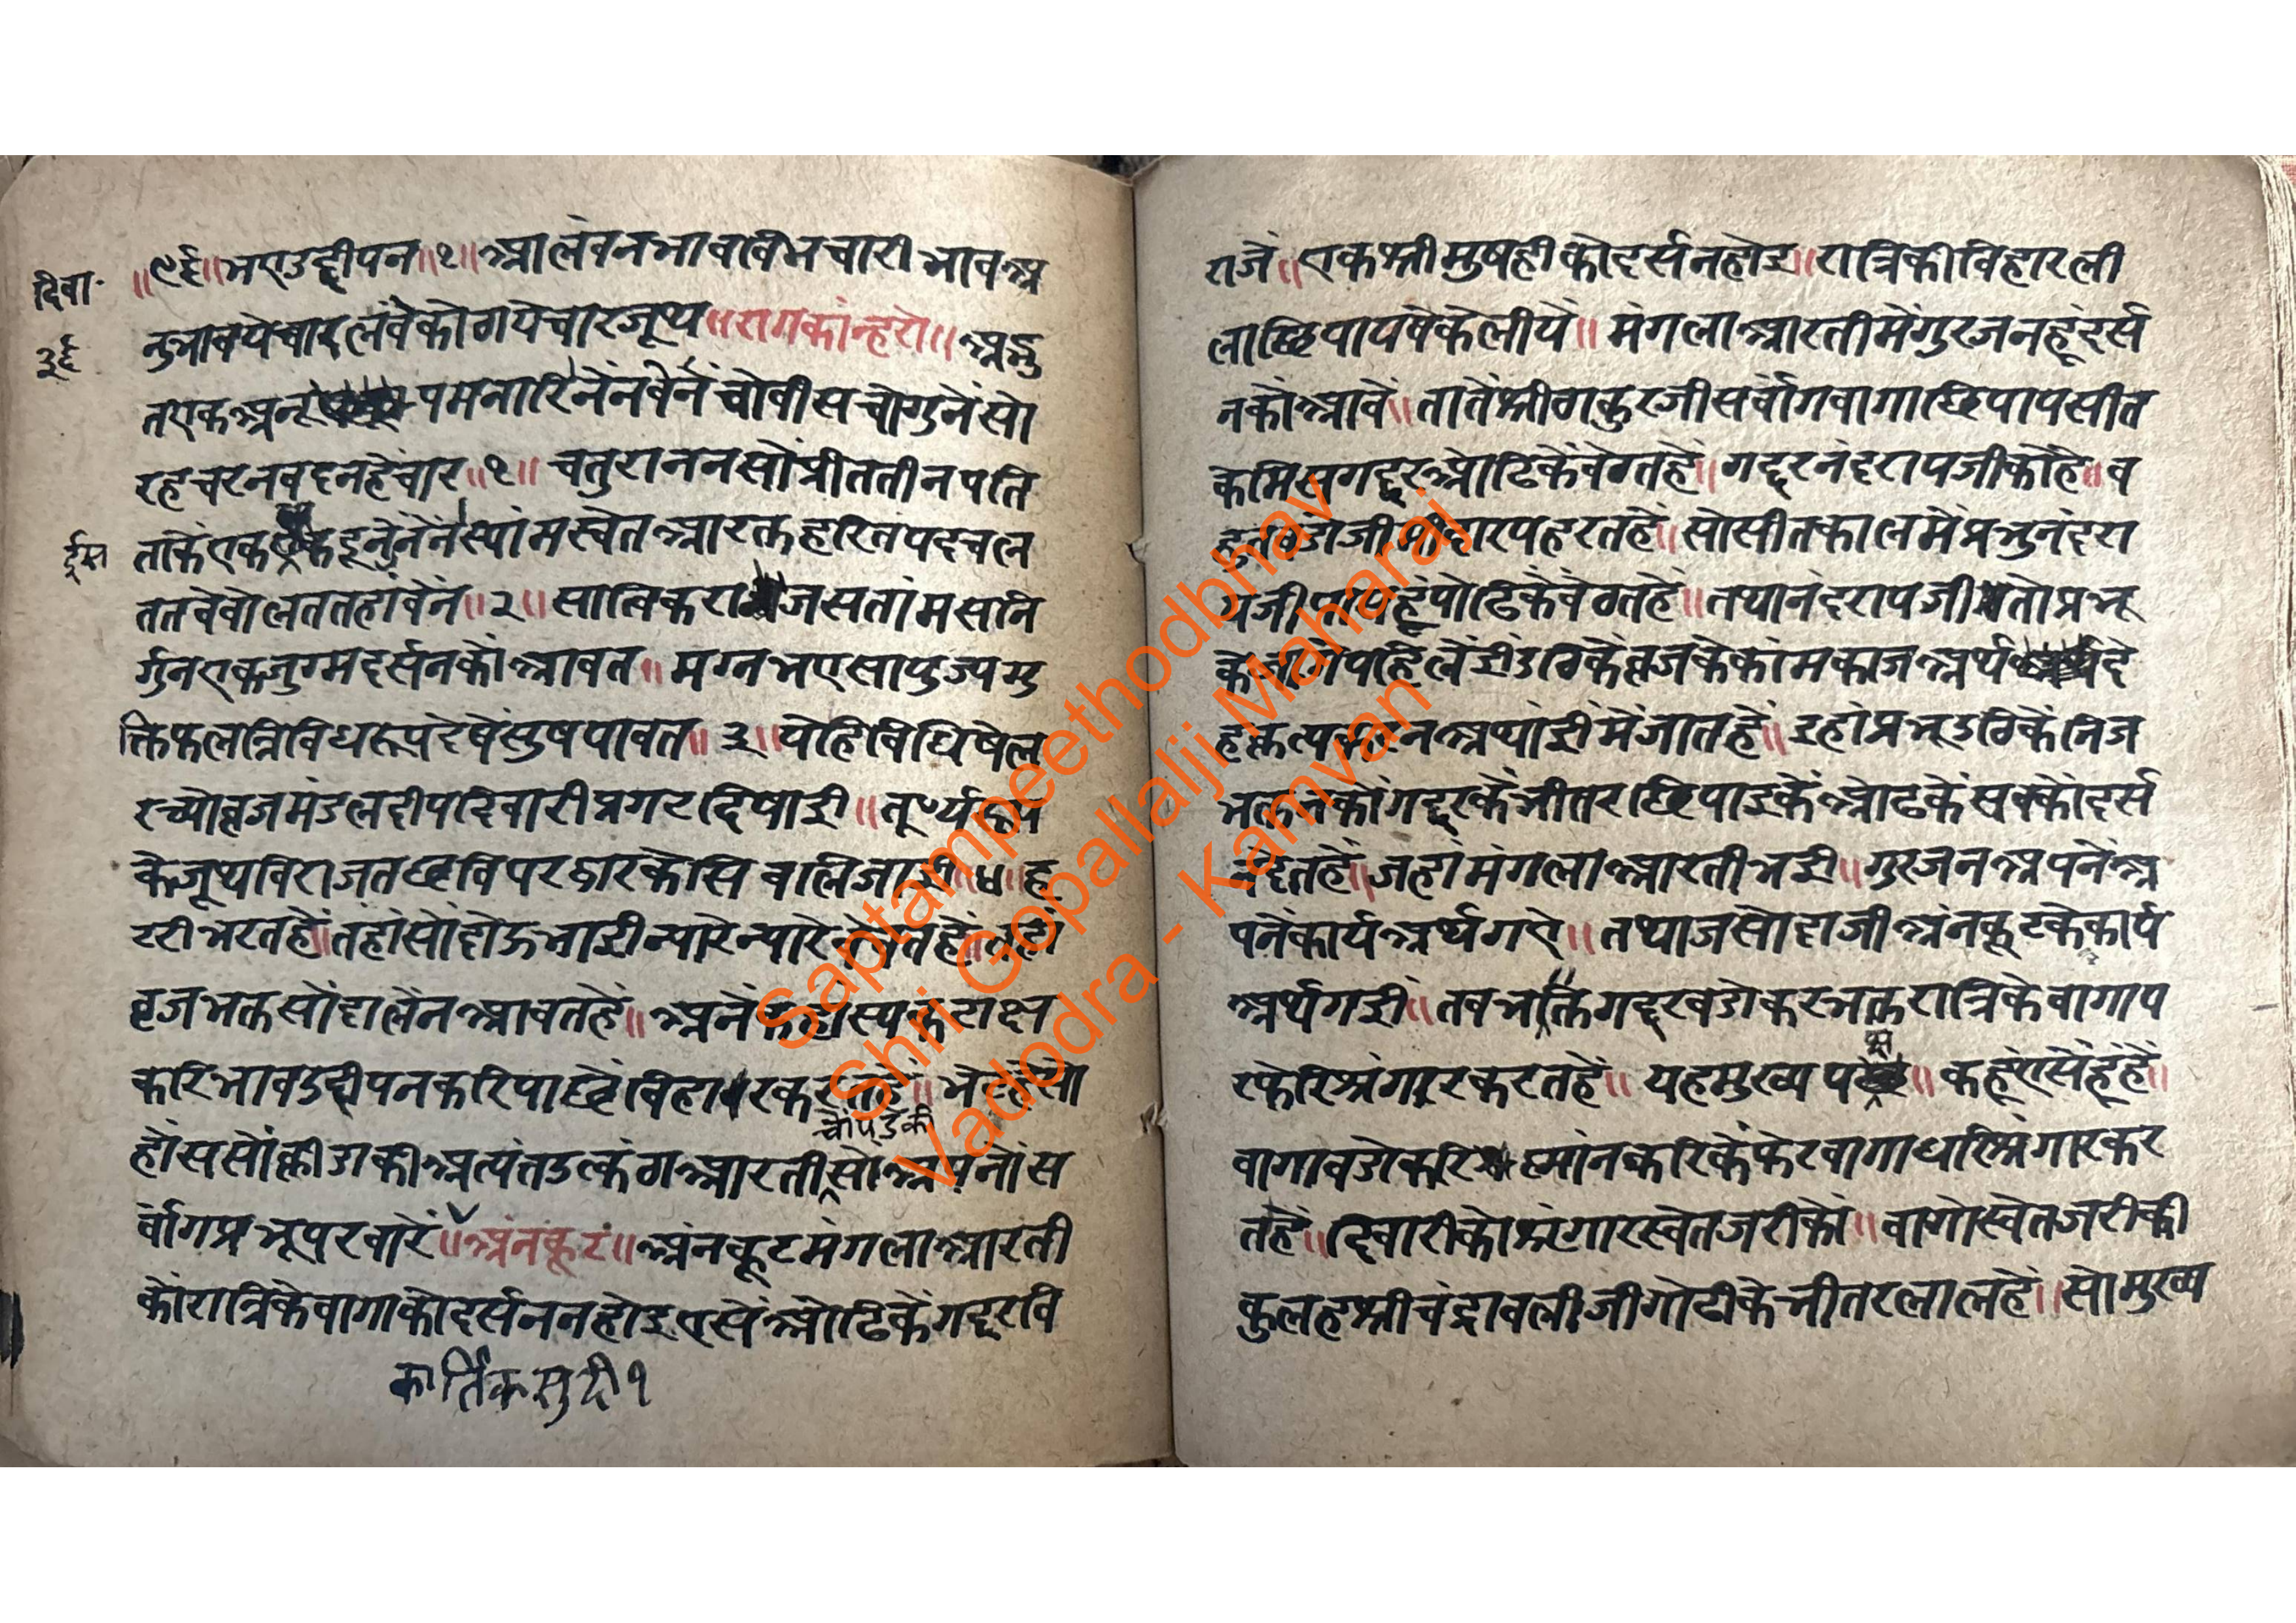 दिवा॰
३६
॥९६॥भएउद्दीपन॥१॥आलंबनभावविभचारीभावअ
नुभावयेचारलंबेकोठायेचारजूथ॥रागकांन्हरो॥अद्भु
तएकअनूपमनारिनेंनबेंनचोवीसचोगुनेंसो
रहचरनबदनहेंचार॥१॥चतुराननसोंप्रीततीनपति
ईस
ताकेंएककइनुनेंनेंस्यांमस्वेतआरक्तहरितपदचल
ततबेबोलततहांबेंन॥२॥सात्विकराजसतांमसनि
र्गुनएकजुग्मदर्सनकोंआवत॥मग्नभएसापुज्यमु
क्तिफलत्रिविधरूपदेषेंसुषपावत॥३॥येहिबिधिषेल
रच्योव्रजमंडलदीपदिवारीप्रगटदिषाई॥तूर्य
केजूथविराजतछविपरद्वारकेसबलिजाई॥४॥ह
टरीभरतहें॥तहांसोंदोऊभाईन्यारेन्यारे
व्रजभक्तसोंदालेंनआवतहें॥अनेकहास्यकटाक्ष
करिभावउद्दीपनकरिपाछेंविहारकरतहें॥
चोपडकी
होंससोंक्रीडाकीअत्यंतउत्कंठाआरतीसोअपनोंस
र्वागप्रभूपरवारें॥अंनकूट॥अंनकूटमंगलाआरती
कोंरात्रिकेवागाकोदर्सननहोइएसेंओढिकेंगद्दरवि
कार्तिकसुदी१
राजें॥एकश्रीमुषहीकोदर्सनहोइ॥रात्रिकीविहारली
लाछिपायवेकेलीयें॥मंगलाआरतीमेंगुरजनहूंदर्स
नकोंआवें॥तातेंश्रीठाकुरजीसर्वांगवागाछिपायसीत
केमिसगद्दरओढिकेंबेठतहें॥गद्दरनंदरायजीकोहे॥व
हहतहें॥सोसीतकालमेंप्रभुनंदरा
यजीओढिकेंबेंठतहें॥तथानंदरायजीतोप्रभू
केजागेपहिलेंईउठिकेंव्रजकेकांमकाजअर्थदे
हकृत्यमेंजातहें॥इहांप्रभूउठिकेंनिज
भक्तनकोंगद्दरकेंभीतरछिपाइकेंओढकेंसबकोंदर्स
नदेतहें॥जहांमंगलाआरतीभई॥गुरजनअपनेंअ
पनेंकार्यअर्थगऐ॥तथाजसोदाजीअंनकूटकेकार्य
अर्थगई॥तबभक्तिगद्दरबडोकरभक्तरात्रिकेवागाप
रफेरिश्रंगारकरतहें॥यहमुख्यपक्ष॥कहूंएसेंहूंहें॥
वागाबडोकरिस्नांनकरिकेंफेरवागाधरिश्रंगारकर
तहें॥दिवारीकोश्रंगारस्वेतजरीकों॥वागोस्वेतजरीकी
कुलहश्रीचंद्रावलीजीगोटीकेभीतरलालहें॥सोमुख्य
Saptampeethodbhav
Shri Gopallalji Maharaj
Vadodra - Kamvan